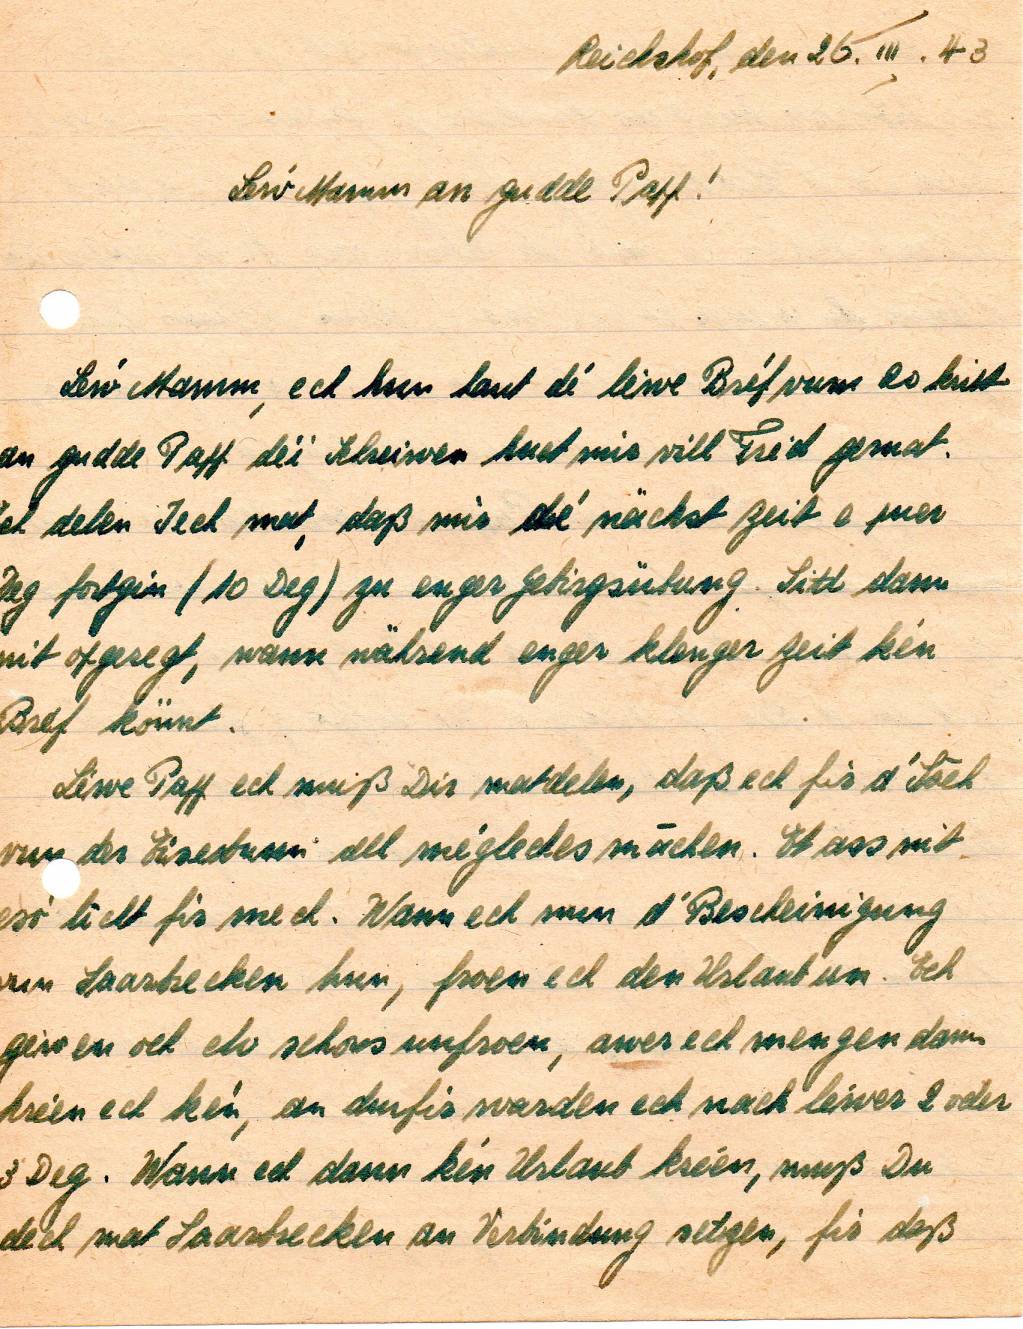 Reichshof, den 26. III. 43
Léiw Mamm an gudde Papp!
Léiw Mamm, ech hun haut dé léiwe Bréf vum 20 kritt
an gudde Papp déi Schreiwen huet mir vill Freid gemat.
Ech delen Iech mat, daß mir dé nächst Zeit e puer
Deg fortgin (10 Deg) zu enger Gebirgsübung. Sitt dann
nit opgeregt, wann während enger klenger Zeit kén
Bréf könnt.
Léiwe Papp ech muß Dir matdelen, daß ech fir d'Sach
vun der Eisebunn all méigleches māchen. Et ass nit
esó licht fir mech. Wann ech nun d'Bescheinigung
vun Saarbrecken hun, froen ech den Urlaub un. Ech
géiwen och elo schons unfroen, awer ech mengen dann
kréien ech kén, an dorfir warden ech nach léiwer 2 oder
3 Deg. Wann ech dann kén Urlaub kréien, muß Du
dech mat Saarbrecken an Verbindung setzen, fir daß